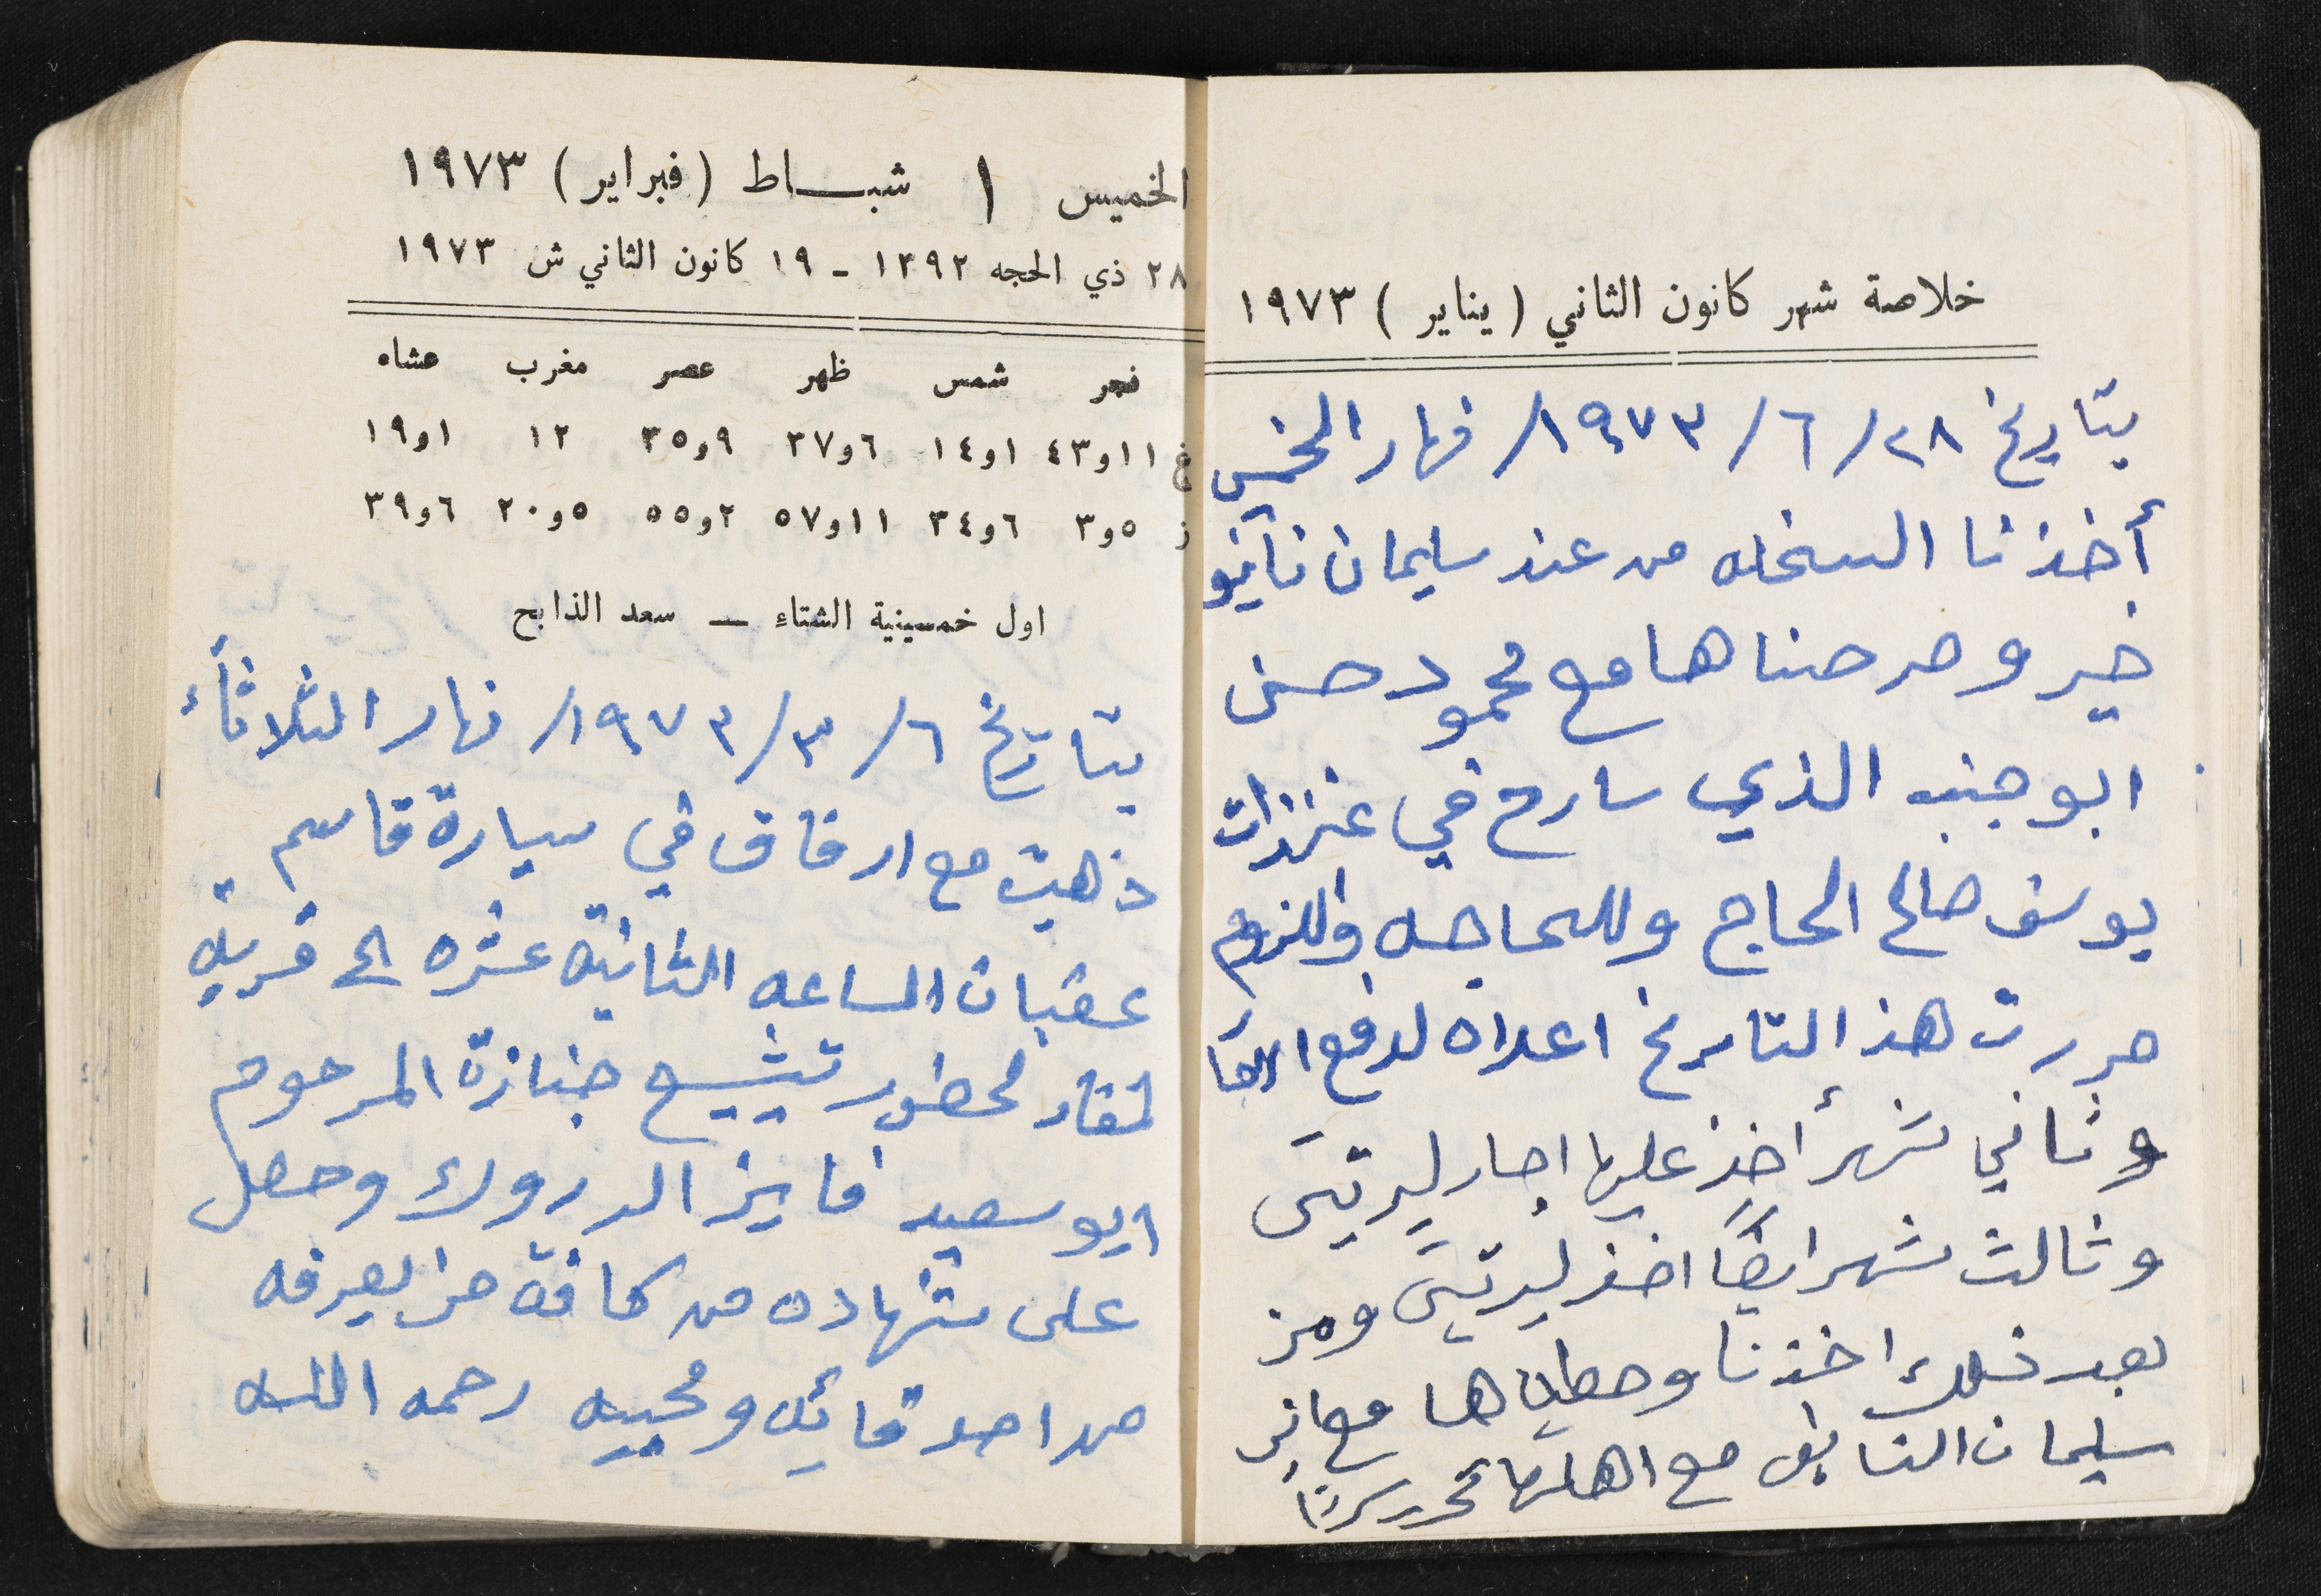 خلاصة شهر كانون الثاني ( يناير ) ١٩٧٣
بتاريخ ٢٨/ ٦/ ١٩٧٣/ نهار الخميس
أخذنا السخله من عند سليمان نايفو
خير وسرحناها مع محمود حسن
ابو جنب الذي سارح في عنزات
يوسف صالح الحاج وللحاجه واللزوم
حررت هذ التاريخ اعلاه لدفع
وثاني شهر أخذ عليها اجار ليرتين
وثالث شهر ايضاً اخذ ليرتين ومن
بعد ذلك اخذنا وحطيناها مع
سليمان النايف مع اهلها
الخميس ١ شبـــاط (فبراير) ١٩٧٣
٢٨ ذي الحجه ١٣٩٢ ـ ١٩ كانون الثاني ش ١٩٧٣
فجر شمس ظهر عصر مغرب عشاه
غ ١١و٤٣ ١و١٤ ٦و٣٧ ٩و٣٥ ١٢ ١و١٩
ز ٥و٣ ٦و٣٤ ١١و٥٧ ٢و٥٥ ٥و٢٠ ٦و٣٩
اول خمسينية الشتاء — سعد الذابح
بتاريخ ٦/ ٣/ ١٩٧٣/ نهار الثلاثاء
ذهبت مع ارفاق في سيارة قاسم
عقبان الساعه الثانية عشره الى قرية
لمغار لحضور تشييع جنازة المرحوم
ابو سعيد فايز الدروك وحصل
على شهاده من كافة من يعرفه
من اصدقائه ومحبيه رحمه الله